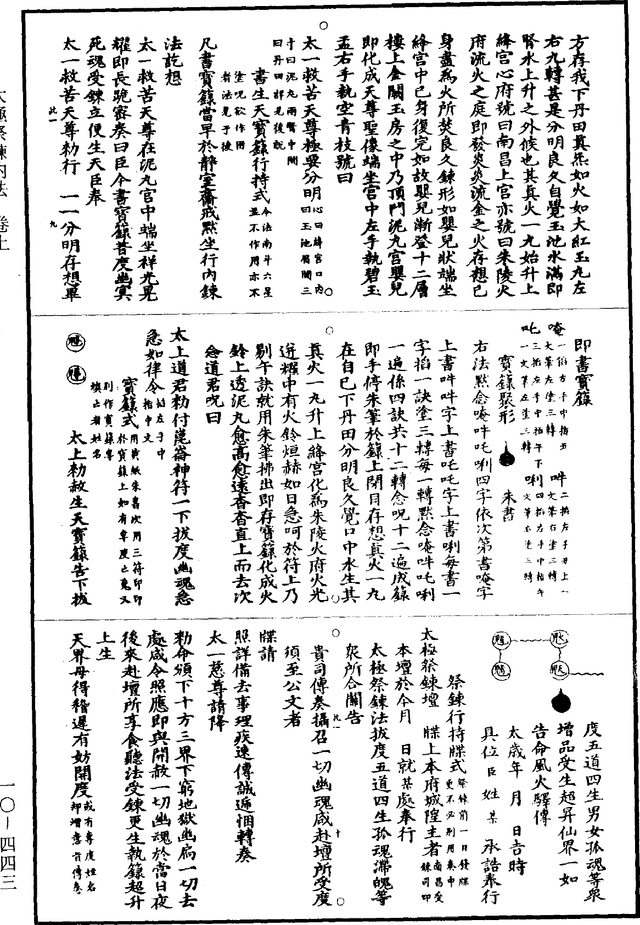 方存我下丹田真炁如火如大紅玉丸左
右九轉甚是分明良久自覺玉池水滿即
腎水上升之外候也其真火一丸始升上
絳宮心府號曰南昌上宮亦號曰朱陵火
府流火之庭即發炎炎流金之火存想已
身盡為火所焚良久鍊形如嬰兒狀端坐
絳宮中已身復完如故嬰兒漸登十二層
樓上金闕玉房之中乃頂門泥丸宮嬰兒
即化成天尊聖像端坐宮中左手執碧玉
盂右手執空青枝號曰
太一救苦天尊極要分明心曰絳宮口內曰玉池眉間三
寸曰泥丸兩腎中間曰丹田即見後說
書生天寶籙行持式
凡書寶籙當早於靜室齋戒默坐行內鍊
法訖想
太一救苦天尊在泥丸宮中端坐祥光晃
耀即長跪密奏曰臣今書寶籙普度幽冥
死魂受鍊立便生天臣奉
太一救苦天尊勅行 一一分明存想畢
即書寶籙
寶籙聚形 朱書
右法默念唵吽吒唎四字依次第書唵字
上書吽吽字上書吒吒字上書唎每書一
字掐一訣塗三轉每一轉默念唵吽吒唎
一遍係四訣共十二轉念呪十二遍成籙
即手停朱筆於籙上閉目存想真火一丸
在自已下丹田分明良久覺口中水生其
真火一丸升上絳宮化為朱陵火府火光
迸耀中有火鈴烜赫如日急呵於符上乃
剔午訣就用朱筆拂出即存寶籙化成火
鈴上透泥丸愈高愈遠杳杳直上而去次
念道君呪曰
太上道君勅付崑崙神符一下拔度幽魂急
急如律令
寶籙式
太上勅赦生天寶籙告下拔
度五道四生男女孤魂等眾
增品受生超昇仙界一如
告命風火驛傳
太歲年 月 日吉時
具位臣姓 某 承誥奉行
祭鍊行持牒式
太極祭鍊壇 牒上本府城隍主者
本壇於今月 日就某處奉行
太極祭鍊法拔度五道四生孤魂滯魄等
眾所合關告
貴司傳奏攝召一切幽魂咸赴壇所受度
須至公文者
牒請
照詳備去事理疾速傳誠遍悃轉奏
太一慈尊請降
勅命頒下十方三界下窮地獄幽扃一切去
處咸令照應即與開赦一切幽魂於當日夜
後來赴壇所享食聽法受鍊更生執籙超升
上生
天界毋得稽遲有妨開度
太極祭鍊內法 卷上
一〇－四四三